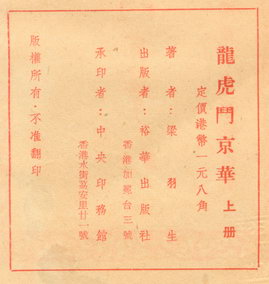 龍虎鬥京華 上册
定價港幣一元八角
著者：梁羽生
出版者：裕華出版社
香港加冕台三號
承印者：中央印務館
香港水街荔安里廿一號
版權所有·不准翻印